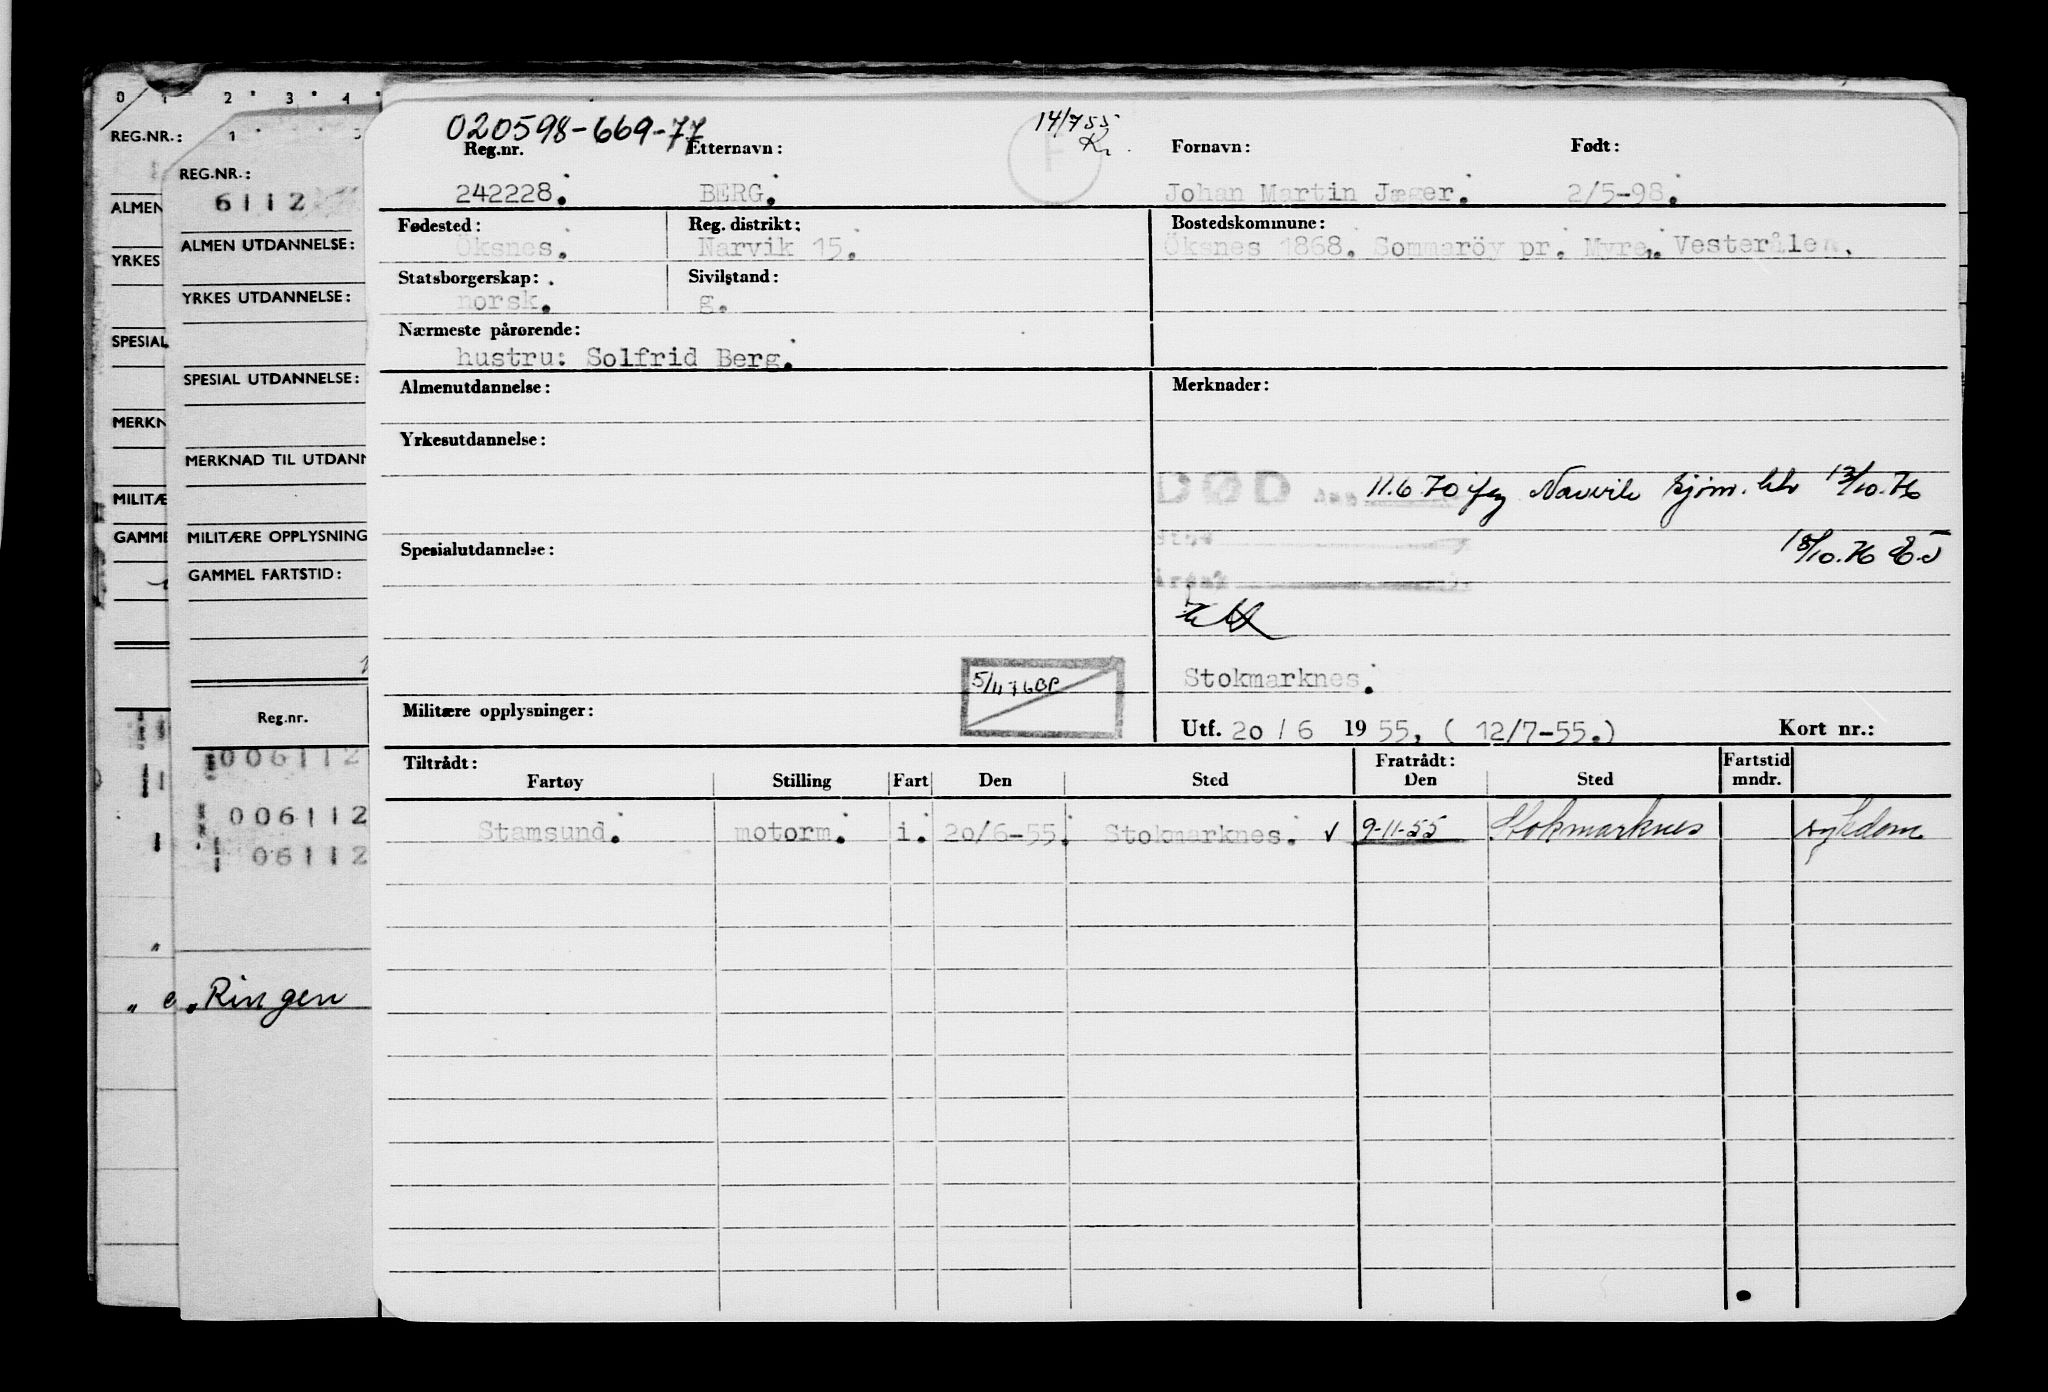 0 1 2 3 4
REG.NR.:
ALMEN
YRKES
SPESIAL
MERKN
MILITÆ
GAMME
1
REG.NR.:
6112
ALMEN UTDANNELSE:
YRKES UTDANNELSE:
SPESIAL UTDANNELSE:
MERKNAD TIL UTDANN
MILITÆRE OPPLYSNING
GAMMEL FARTSTID:
Reg.nr.
006112
006112
06112
" e "Ringen
020598-669-77 14/7 55
Kr.
Reg.nr. Etternavn: F Fornavn: Født:
242228. BERG. Johan Martin Jæger. 2/5-98.
Fødested: Reg. distrikt: Bostedskommune:
Öksnes. Narvik 15. Öksnes 1868. Sommaröy pr. Myre, Vesterålen.
Statsborgerskap: Sivilstand:
norsk. g.
Nærmeste pårørende:
hustru: Solfrid Berg.
Almenutdannelse: Merknader:
Yrkesutdannelse:
DØD 11.6.70 Narvik 13/10.76
Spesialutdannelse: 18/10.76
Årsak
Stokmarknes.
5/11 76 BP
Militære opplysninger: Utf. 20 / 6 1955. ( 12/7-55.) Kort nr.:
Tiltrådt: Fratrådt: Fartstid
Fartøy Stilling Fart Den Sted Den Sted mndr.
Stamsund. motorm. i. 20/6-55. Stokmarknes. ✓ 9-11-55 Stokmarknes sykdom